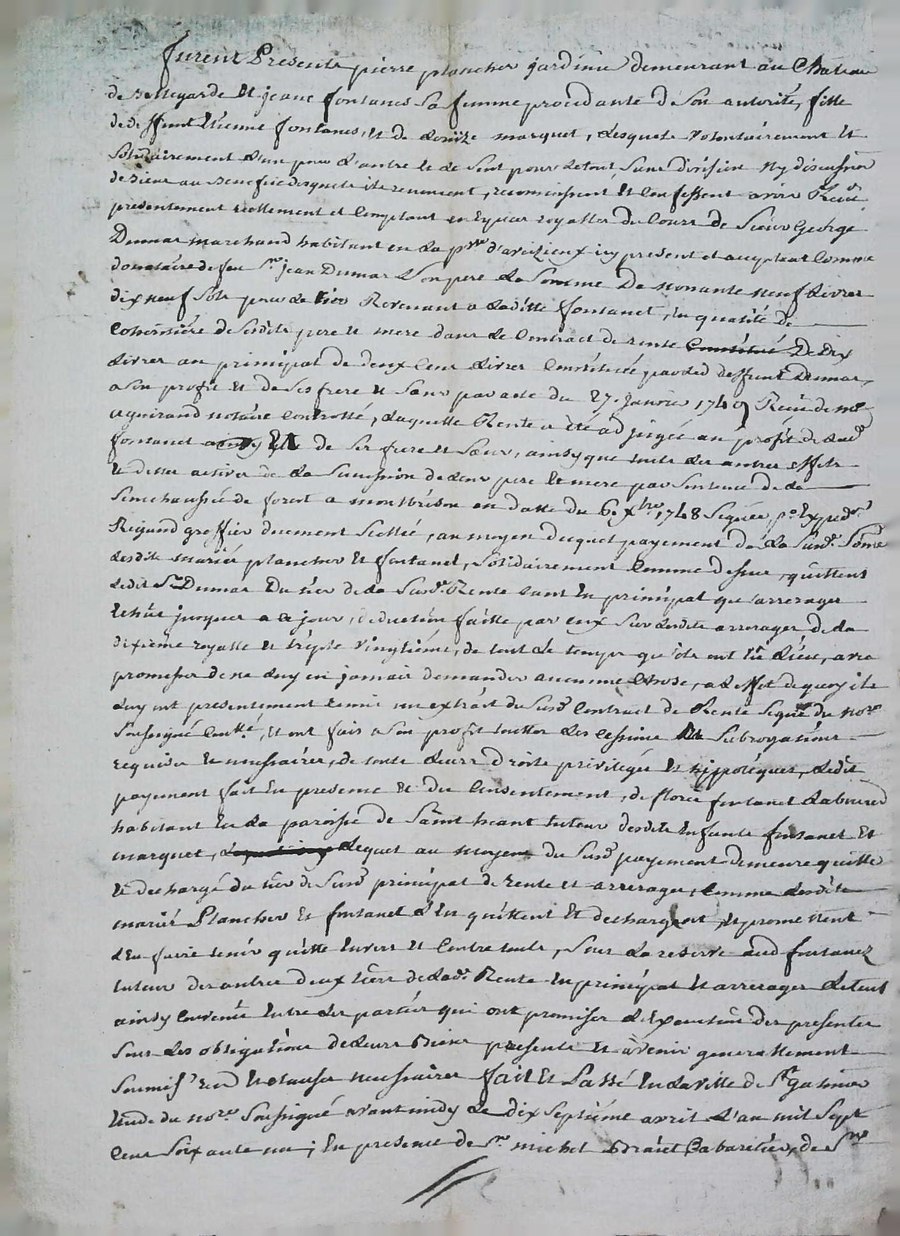 furent Presents pierre plancher jardinier demeurant au Chateau
de Bellegarde et jeane fontanes sa femme procedante de son autorité, fille
de deffunt Etienne fontanes, et de denize marquet, lesquels volontairement et
solidairement l'un pour l'autre et de seul pour le tout, sans division ny discussion
de biens au benefice desquels ils renoncent, reconoissent et Confessent avoir Receu
presentement reellement et Comptant en Espece royalles du Cours de sieur George
Dumas marchand habitant en la p.sse d'aveizieux icy present et acceptant Comme
donataire de feu Sr jean Dumas son pere la somme De nonante neuf livres
dix neuf sols pour le tiers Revenant a laditte fontanes, en qualité de
Cohéritière de sesdits pere et mere dans le Contract de rente De Dix
livres au principal de deux Cent livres Constituée par led deffunt Dumas,
a son profit et de ses frere et sœur par acte du 27. Janvier 1740 Receu de me
aguirand notaire Controllé, laquelle Rente a eté adjugée au profit de lad.
fontanes et de ses frere et sœur, ainsy que touts les autres effets
et dettes actives de la succession de leur pere et mere par sentence de la
senechaussée de forest a montbrison en datte du 6e xbre 1748 signée, po Expedon
Rigaud greffier duement scellé, au moyen duquel payement de la susd. somme
lesdits mariés plancher et fontanes, solidairement Comme dessus, quittent
ledit Sr Dumas Du tiers de la susd. Rente tant en principal que arrerages
Echus jusques a ce jour, deduction faitte par eux sur lesdits arrerages de la
dixieme royalle et triple vingtieme, de tout le temps qu'ils ont eu lieu, avec
promesse de ne luy en jamais demander aucunne Chose, a l'effet de quoy ils
luy ont presentement remis un extrait du susd Contract de Rente signé du nore
soussigné Contlé, et ont fait a son profit touttes les cessions et subrogations
requises et necessaires, de touts leurs droits privileges et hippoteques, ledit
payement fait en presence et du Consentement, de fleury fontanes laboureur
habitant en la paroisse de saint heant tuteur desdits enfants fontanes et
marquet, lequel au moyen du susd payement demeure quitte
et dechargé du tiers de susd principal de rente et arrerages, Comme lesdits
mariés Plancher et fontanes l'en quittent et dechargent, et promettent
l'en faire tenir quitte envers et Contre touts, sous la reserve aud fontanes
tuteur des autres deux tiers de lad. Rente en principal et arrerages le tout
ainsy Convenu Entre les parties qui ont promises l'Execution des presentes
sous les obligations de leurs Biens presents et avenir generallement
soumisson et Clauses necessaires fait et Passé en la ville de St galmier
Etude du nore soussigné avant midy le dix septieme avril l'an mil sept
Cent soixante un; En presence de Sr michel de Sr